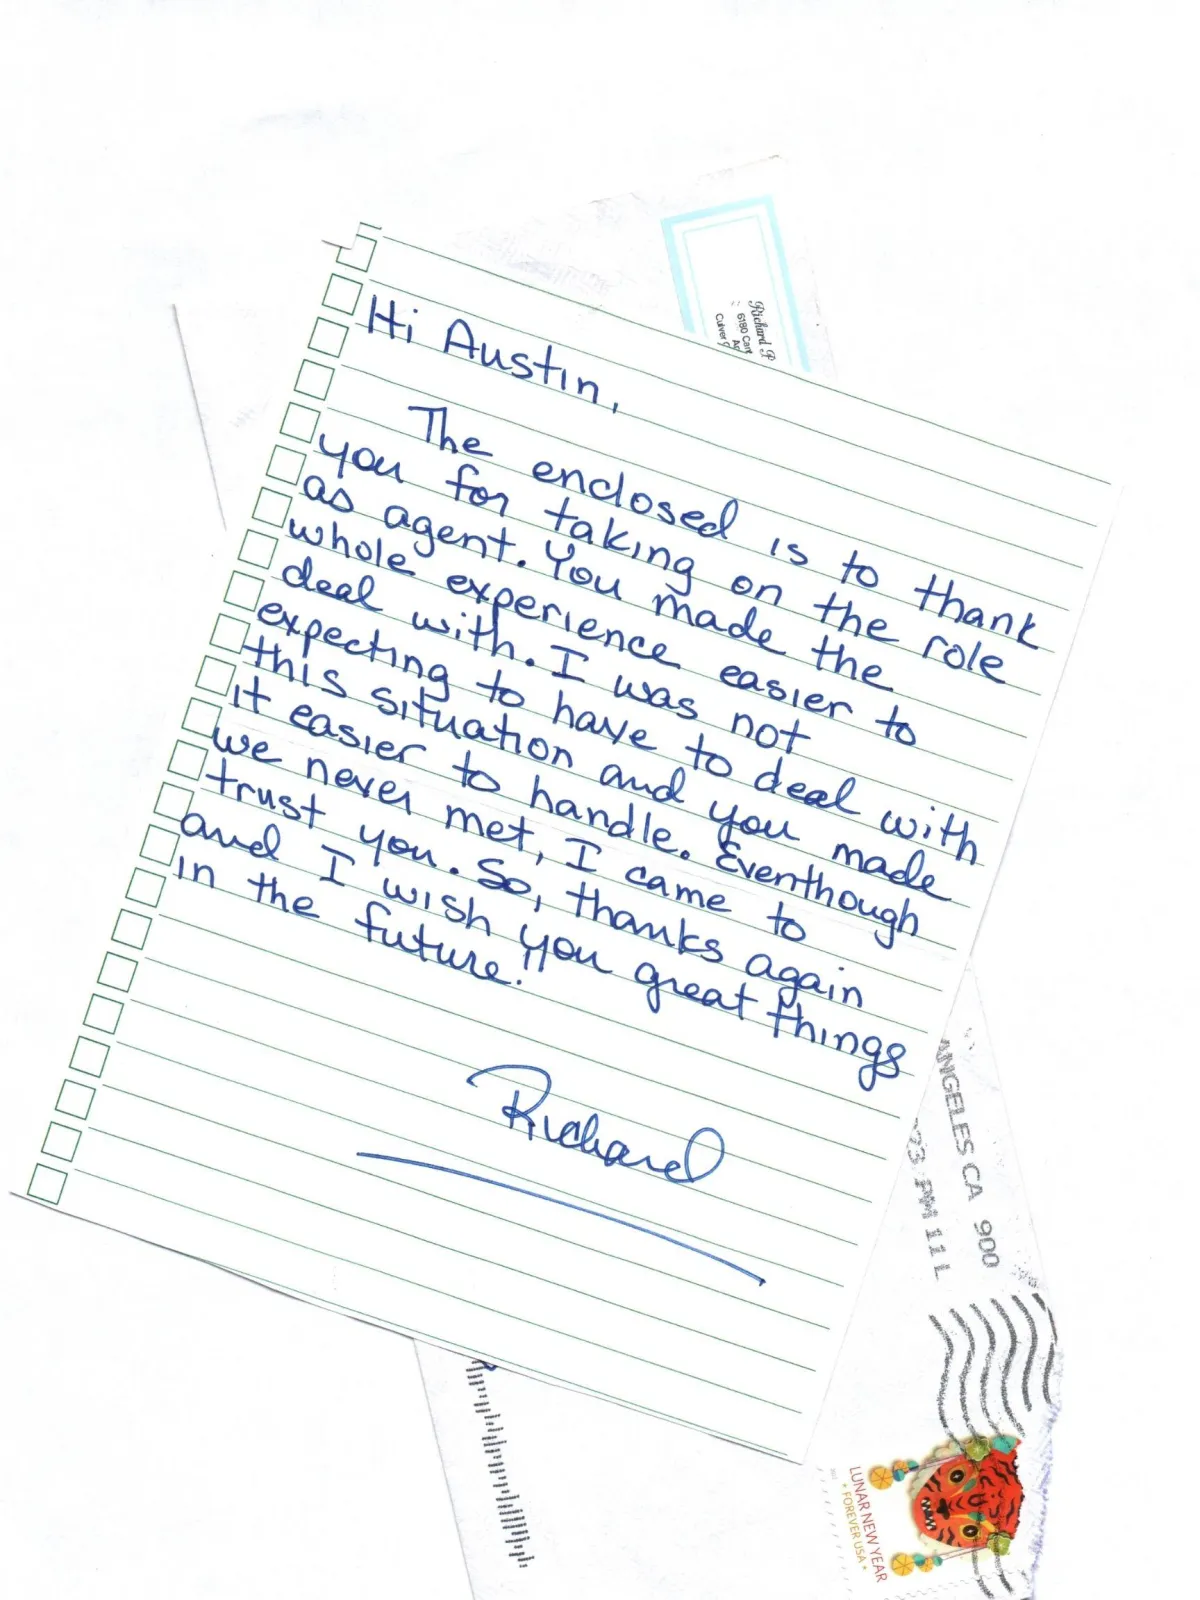 Hi Austin,
The enclosed is to thank
you for taking on the role
as agent. You made the
whole experience easier to
deal with. I was not
expecting to have to deal with
this situation and you made
it easier to handle. Eventhough
we never met, I came to
trust you. So, thanks again
and I wish you great things
in the future!!
Richard
Richard P
6180
Culver
ANGELES CA 900
PM 11 L
LUNAR NEW YEAR
FOREVER USA